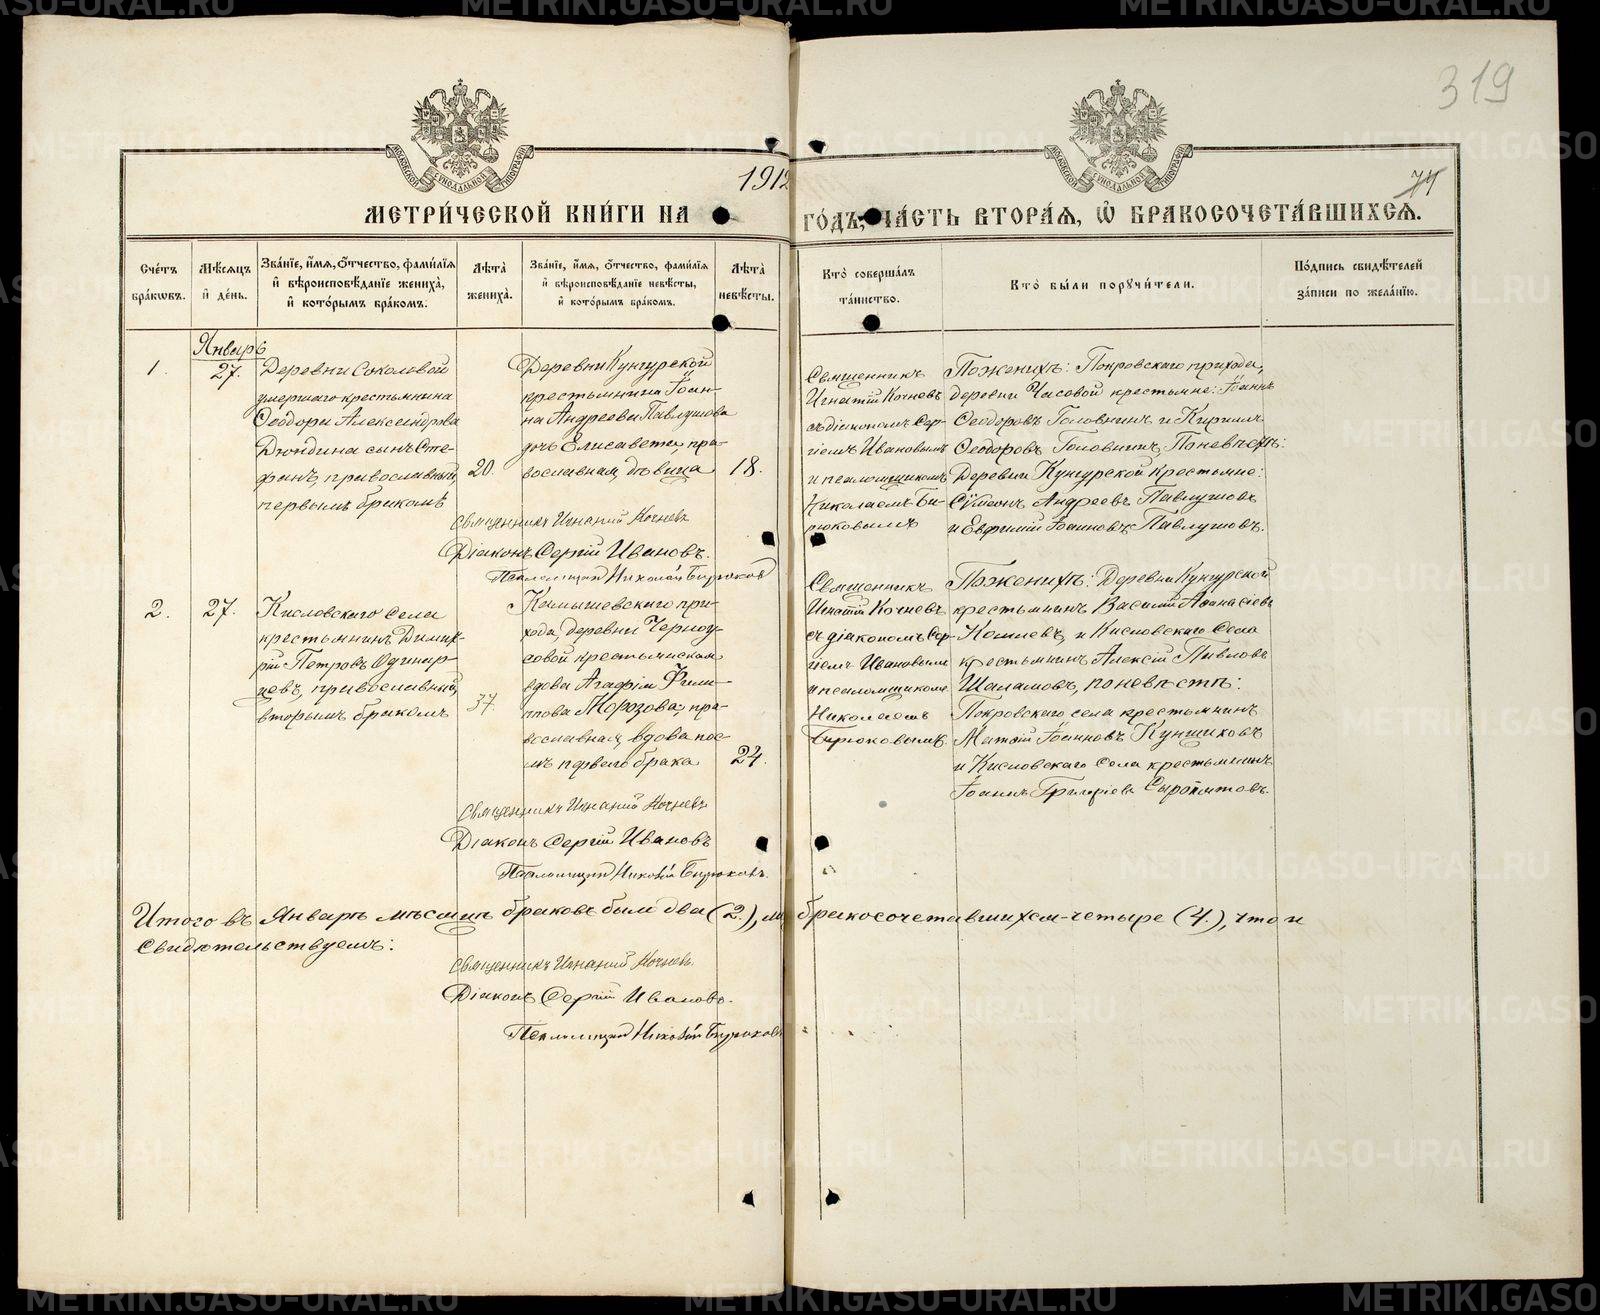 319
1912
74
МЕТРИ́ЧЕСКОЙ КНИ́ГИ НА
ГО́ДЪ, ЧА́СТЬ ВТОРА́Я, Ѽ БРАКОСОЧЕТА́ВШИХСЯ.
Сче́тъ бра́кѡвъ.
Мѣ́сяцъ и҆ де́нь.
Зва́нїе, и҆́мя, ѻ҆́тчество, фами́лїя и҆ вѣроисповѣ́данїе жениха̀, и҆ кото́рымъ бра́комъ.
Лѣ́та жениха̀.
Зва́нїе, и҆́мя, ѻ҆́тчество, фами́лїя и҆ вѣроисповѣ́данїе невѣ́сты, и҆ кото́рымъ бра́комъ.
Лѣ́та невѣ́сты.
Кто̀ соверша́лъ та́инство.
Кто̀ бы́ли порꙋчи́тели.
По́дпись свидѣ́телей за́писи по жела́нїю.
Январь
1.
27.
Деревни Соколовой
умершаго крестьянина
Ѳеодора Александрова
Дюндина сынъ Сте-
фанъ, православный,
первымъ бракомъ
20.
Деревни Кунгурской
крестьянина Іоан-
на Андреева Павлушова
дочь Елисавета, пра-
вославная, дѣвица
18.
Священникъ
Игнатій Кочневъ
съ діакономъ Сер-
гіемъ Ивановымъ
и псаломщикомъ
Николаемъ Би-
рюковымъ
По женихѣ: Покровскаго прихода,
деревни Часовой крестьяне: Іоаннъ
Ѳеодоровъ Головнинъ и Кириллъ
Ѳеодоровъ Головнинъ, По невѣстѣ:
Деревни Кунгурской крестьяне:
Сѷмеонъ Андреевъ Павлушовъ
и Евфимій Іоанновъ Павлушовъ.
Священникъ Игнатій Кочневъ
Діаконъ Сергій Ивановъ.
Псаломщикъ Николай Бирюковъ
2.
27.
Кисловскаго Села
крестьянинъ Димит-
рій Петровъ Одинар-
цевъ, православный,
вторымъ бракомъ
37.
Камышевскаго при-
хода, деревни Черноу-
совой крестьянская
вдова Агафія Фили-
ппова Морозова, пра-
вославная, вдова пос-
лѣ перваго брака
24.
Священникъ
Игнатій Кочневъ
съ діакономъ Сер-
гіемъ Ивановымъ
и псаломщикомъ
Николаемъ
Бирюковымъ.
По женихѣ: Деревни Кунгурской
крестьянинъ Василій Аѳанасіевъ
и Кисловскаго Села
крестьянинъ Алексій Павловъ
Шаламовъ, по невѣстѣ:
Покровскаго села крестьянинъ
Матѳій Іоанновъ Кунщиковъ
и Кисловскаго Села крестьянинъ
Іоаннъ Григоріевъ Сыропятовъ.
Священникъ Игнатій Кочневъ
Діаконъ Сергій Ивановъ
Псаломщикъ Николай Бирюковъ.
Итого въ Январѣ мѣсяцѣ браковъ было два (2.), а бракосочетавшихся - четыре (4.), что и
Свидѣтельствуемъ:
Священникъ Игнатій Кочневъ.
Діаконъ Сергій Ивановъ.
Псаломщикъ Николай Бирюковъ
METRIKI.GASO-URAL.RU